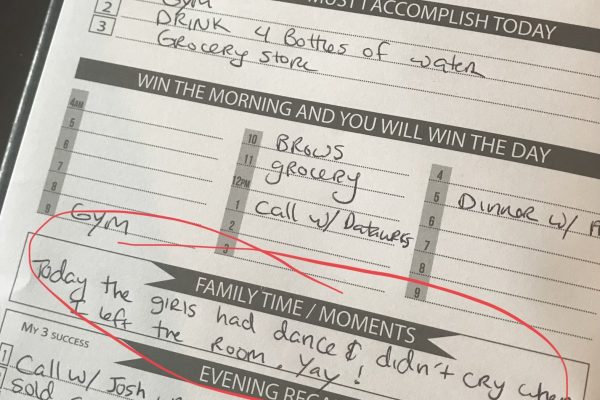 MUST I ACCOMPLISH TODAY
2 GYM
3 DRINK 4 Bottles of water
Grocery Store
WIN THE MORNING AND YOU WILL WIN THE DAY
4AM
5
6
7
8
9 GYM
10 BROWS
11 GROCERY
12PM
1 Call w/
2
3
4
5 Dinnor w/
6
7
8
9
FAMILY TIME / MOMENTS
Today the GIRLS had dance & didn't cry when
I left the Room. Yay!
MY 3 SUCCESS
EVENING
1 Call w/ Josh
sold